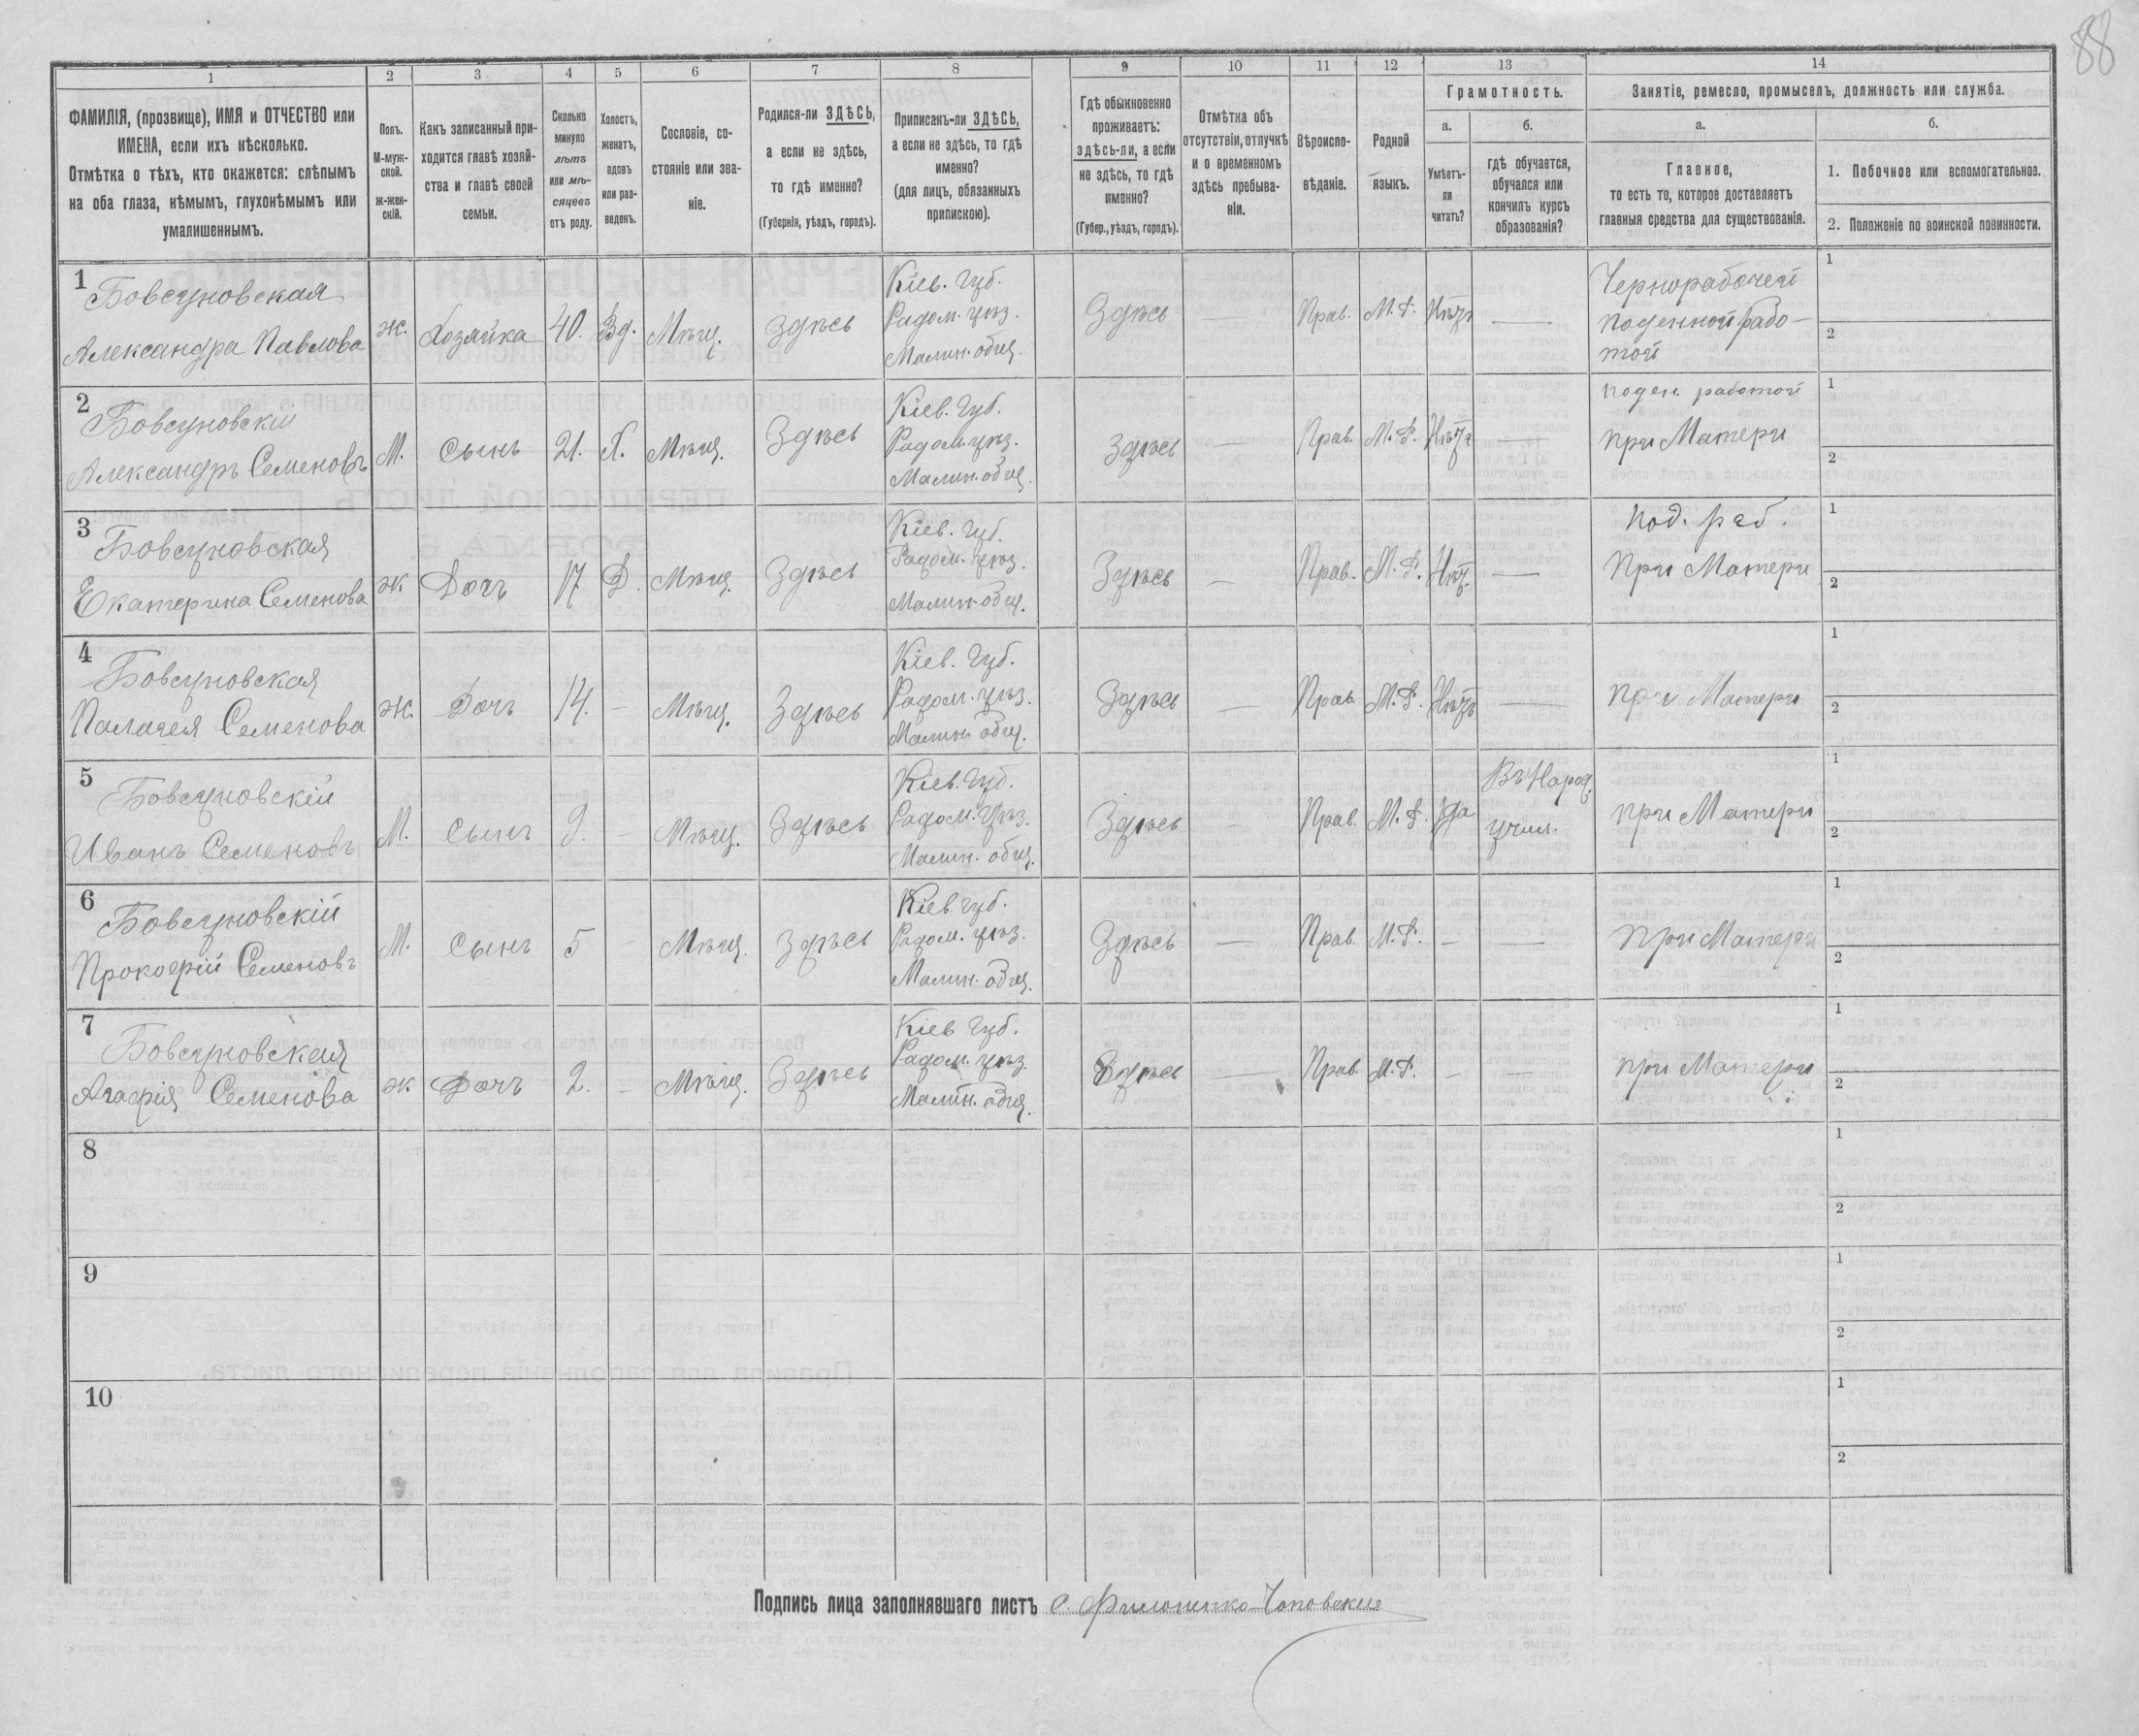 88
1
2
3
4
5
6
7
8
9
10
11
12
13
14
ФАМИЛІЯ, (прозвище), ИМЯ и ОТЧЕСТВО или
ИМЕНА, если ихъ нѣсколько.
Отмѣтка о тѣхъ, кто окажется: слѣпымъ
на оба глаза, нѣмымъ, глухонѣмымъ или
умалишеннымъ.
Полъ.
М-муж-
ской.
ж-жен-
скій.
Какъ записанный при-
ходится главѣ хозяй-
ства и главѣ своей
семьи.
Сколько
минуло
лѣтъ
или мѣ-
сяцевъ
отъ роду.
Холостъ,
женатъ,
вдовъ
или раз-
веденъ.
Сословіе, со-
стояніе или зва-
ніе.
Родился-ли ЗДѢСЬ,
а если не здѣсь,
то гдѣ именно?
(Губернія, уѣздъ, городъ).
Приписанъ-ли ЗДѢСЬ,
а если не здѣсь, то гдѣ
именно?
(для лицъ, обязанныхъ
припискою).
Гдѣ обыкновенно
проживаетъ:
здѣсь-ли, а если
не здѣсь, то гдѣ
именно?
(Губер., уѣздъ, городъ).
Отмѣтка объ
отсутствіи, отлучкѣ
и о временномъ
здѣсь пребыва-
ніи.
Вѣроиспо-
вѣданіе.
Родной
языкъ.
Грамотность.
а.
Умѣетъ-
ли
читать?
б.
гдѣ обучается,
обучался или
кончилъ курсъ
образованія?
Занятіе, ремесло, промыселъ, должность или служба.
а.
Главное,
то есть то, которое доставляетъ
главныя средства для существованія.
б.
1. Побочное или вспомогательное.
2. Положеніе по воинской повинности.
1
Бовсуновская
Александра Павлова
ж.
Хозяйка
40.
Вд.
Мѣщ.
Здѣсь
Кіев. Губ.
Радом. уѣз.
Малин. общ.
Здѣсь
—
Прав.
М. Р.
Нѣтъ
—
Чернорабочей
поденной рабо-
той
1
2
2
Бовсуновскій
Александръ Семеновъ
М.
Сынъ
21.
Х.
Мѣщ.
Здѣсь
Кіев. Губ.
Радом. уѣз.
Малин. общ.
Здѣсь
—
Прав.
М. Р.
Нѣтъ
—
поден. работой
при Матери
1
2
3
Бовсуновская
Екатерина Семенова
ж
Дочь
17
Д.
Мѣщ.
Здѣсь
Кіев. Губ.
Радом. уѣз.
Малин. общ.
Здѣсь
—
Прав.
М. Р.
Нѣт.
—
Под. раб.
При Матери
1
2
4
Бовсуновская
Палагея Семенова
ж.
Дочь
14.
—
Мѣщ.
Здѣсь
Кіев. Губ.
Радом. уѣз.
Малин общ.
Здѣсь
—
Прав
М. Р.
Нѣтъ
—
при Матери
1
2
5
Бовсуновскій
Иванъ Семеновъ
М.
Сынъ
9.
—
Мѣщ.
Здѣсь
Кіев. Губ.
Радом. Уѣз.
Малин. общ.
Здѣсь
—
Прав.
М. Р.
Да
Въ Народ.
учил.
при Матери
1
2
6
Бовсуновскій
Прокофій Семеновъ
М.
Сынъ
5
Мѣщ.
Здѣсь
Кіев. Губ.
Радом. уѣз.
Малин. общ.
Здѣсь
—
Прав.
М. Р.
—
—
при Матери
1
2
7
Бовсуновская
Агафія Семенова
ж
Дочь
2.
—
Мѣщ.
Здѣсь
Кіев Губ.
Радом. уѣз.
Малин. общ.
Здѣсь
—
Прав.
М. Р.
—
—
при Матери
1
2
8
1
2
9
1
2
10
1
2
Подпись лица заполнявшаго листъ С.